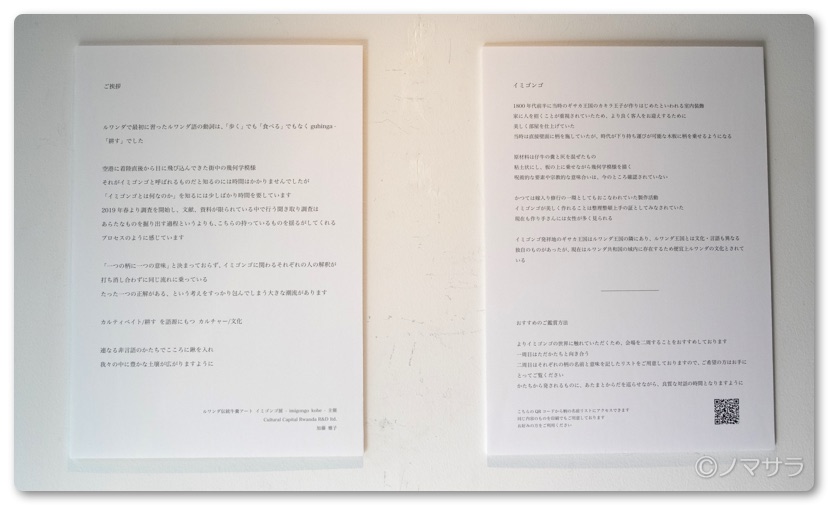 ご挨拶
ルワンダで最初に習ったルワンダ語の動詞は、「歩く」でも「食べる」でもなく guhinga -
「耕す」でした
空港に着陸直後から目に飛び込んできた街中の幾何学模様
それがイミゴンゴと呼ばれるものだと知るのには時間はかかりませんでしたが
「イミゴンゴとは何なのか」を知るには少しばかり時間を要しています
2019年春より調査を開始し、文献、資料が限られている中で行う聞き取り調査は
あらたなものを掘り出す過程というよりも、こちらの持っているものを揺るがしてくれる
プロセスのように感じています
「一つの柄に一つの意味」と決まっておらず、イミゴンゴに関わるそれぞれの人の解釈が
打ち消し合わずに同じ流れに乗っている
たった一つの正解がある、という考えをすっかり包んでしまう大きな潮流があります
カルティベイト/耕す を語源にもつ カルチャー/文化
連なる非言語のかたちでこころに鍬を入れ
我々の中に豊かな土壌が広がりますように
ルワンダ伝統牛糞アート イミゴンゴ展 - imigongo kobe - 主催
Cultural Capital Rwanda R&D ltd.
加藤 雅子
イミゴンゴ
1800年代前半に当時のギサカ王国のカキラ王子が作りはじめたといわれる室内装飾
家に人を招くことが重視されていたため、より良く客人をお迎えするために
美しく部屋を仕上げていた
当時は直接壁面に柄を施していたが、時代が下り持ち運びが可能な木板に柄を乗せるようになる
原材料は仔牛の糞と灰を混ぜたもの
粘土状にし、板の上に乗せながら幾何学模様を描く
呪術的な要素や宗教的な意味合いは、今のところ確認されていない
かつては嫁入り修行の一環としてもおこなわれていた製作活動
イミゴンゴが美しく作れることは整理整頓上手の証としてみなされていた
現在も作り手さんには女性が多く見られる
イミゴンゴ発祥地のギサカ王国はルワンダ王国の隣にあり、ルワンダ王国とは文化・言語も異なる
独自のものがあったが、現在はルワンダ共和国の域内に存在するため便宜上ルワンダの文化とされて
いる
おすすめのご鑑賞方法
よりイミゴンゴの世界に触れていただくため、会場を二周することをおすすめしております
一周目はただかたちと向き合う
二周目はそれぞれの柄の名前と意味を記したリストをご用意しておりますので、ご希望の方はお手に
とってご覧ください
かたちから発されるものに、あたまとからだを巡らせながら、良質な対話の時間となりますように
こちらのQRコードから柄の名前リストにアクセスできます
同じ内容のものを印刷でもご用意しております
お好みの方をご利用ください
©ノマサラ